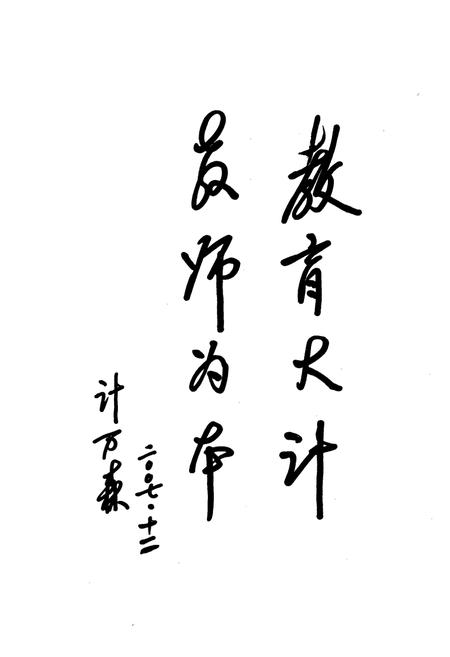 教育大计
教师为本
计万森
二〇〇七·十二